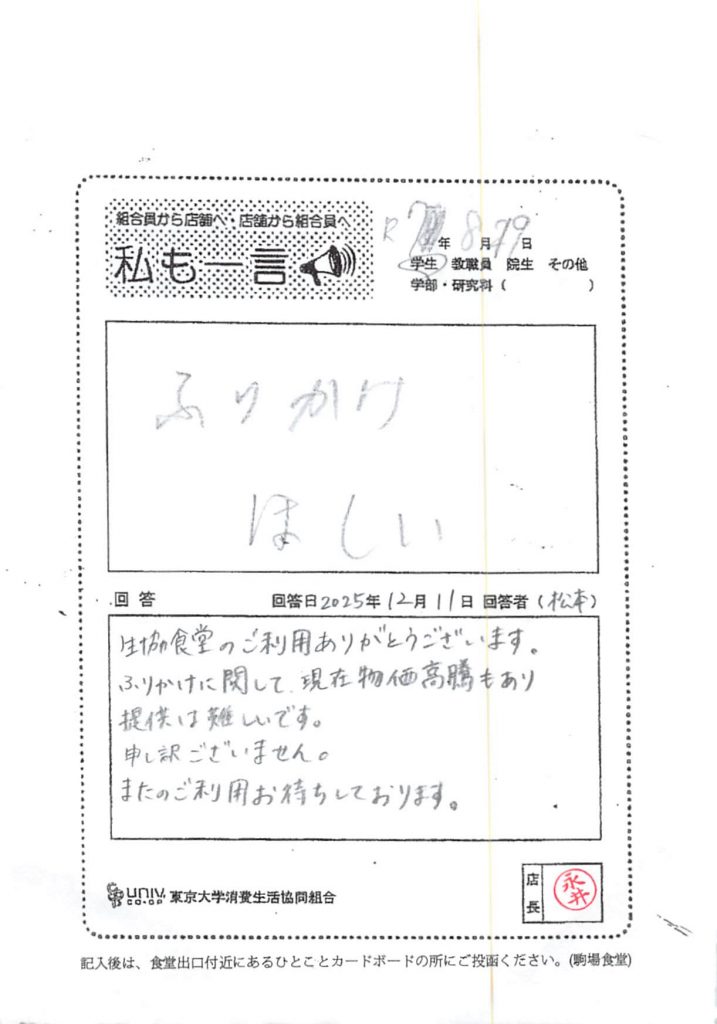 組合員から店舗へ・店舗から組合員へ
私も一言
R7年 8月29日
学生 教職員 院生 その他
学部・研究科 ( )
ふりかけ
ほしい
回答 回答日2025年12月11日 回答者(松本)
生協食堂のご利用ありがとうございます。
ふりかけに関して、現在物価高騰もあり
提供は難しいです。
申し訳ございません。
またのご利用お待ちしております。
UNIV. CO-OP 東京大学消費生活協同組合
店長 永井
記入後は、食堂出口付近にあるひとことカードボードの所にご投函ください。(駒場食堂)